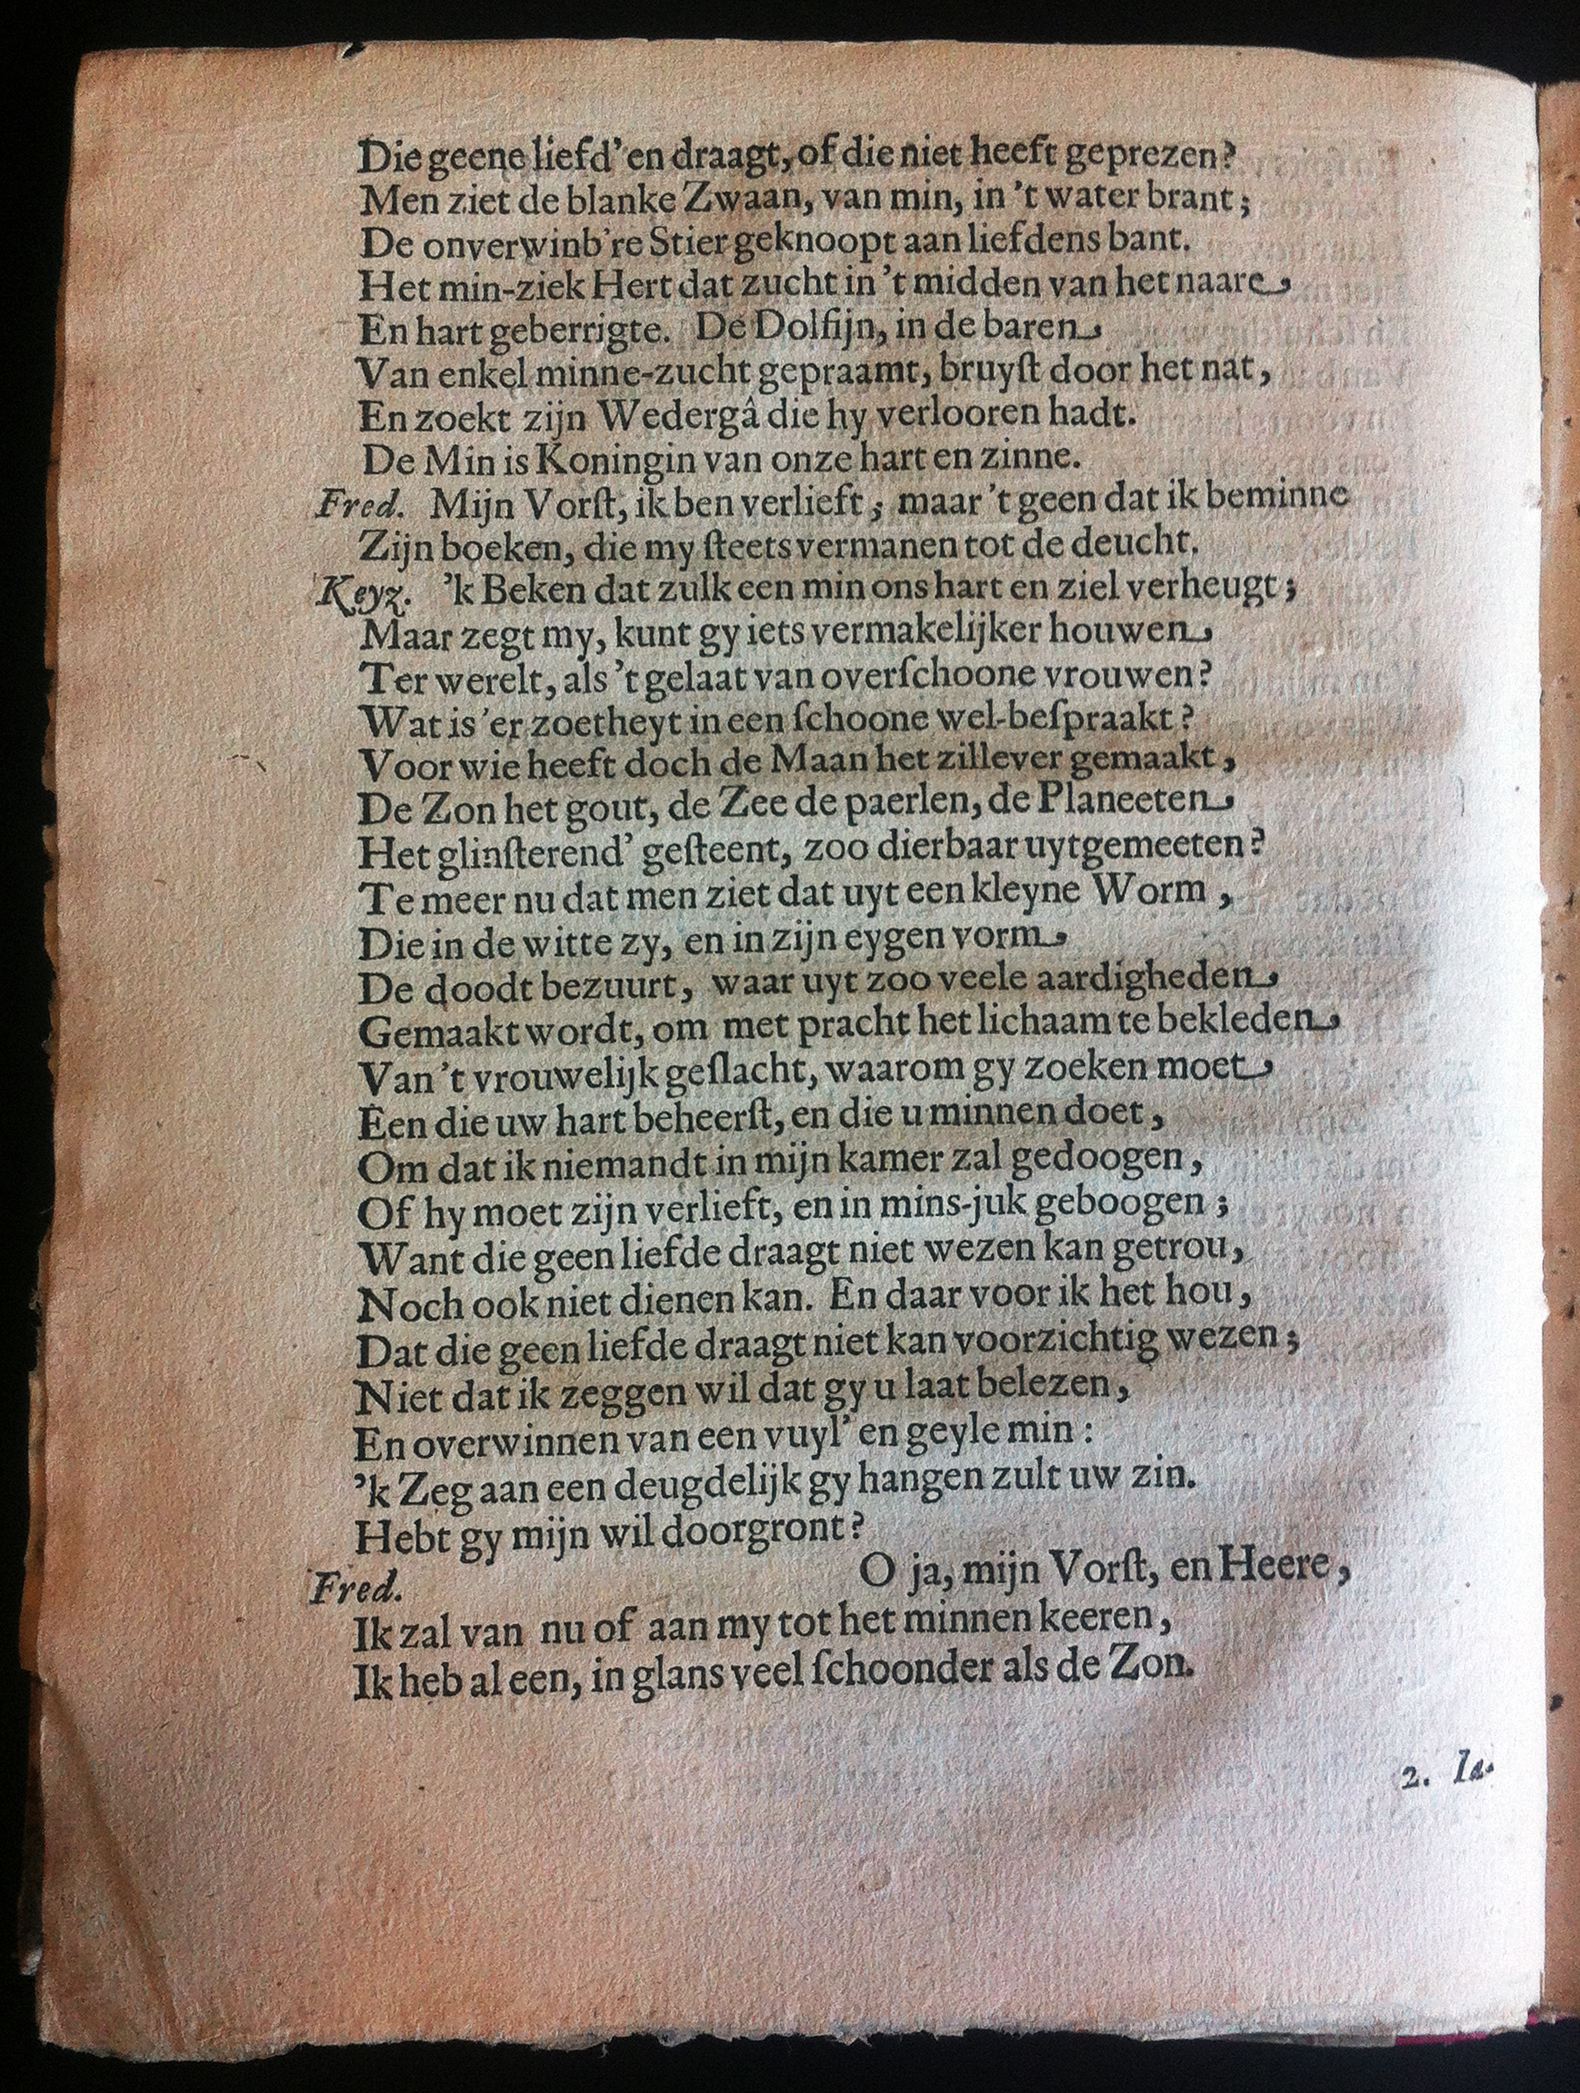 Die geene liefd' en draagt, of die niet heeft geprezen?
Men ziet de blanke Zwaan, van min, in 't water brant;
De onverwinb're Stier geknoopt aan liefdens bant.
Het min-ziek Hert dat zucht in 't midden van het naare
En hart geberrigte. De Dolfijn, in de baren
Van enkel minne-zucht gepraamt, bruyſt door het nat,
En zoekt zijn Wedergâ die hy verlooren hadt.
De Min is Koningin van onze hart en zinne.
Fred. Mijn Vorſt, ik ben verlieft; maar 't geen dat ik beminne
Zijn boeken, die my ſteets vermanen tot de deucht.
Keyz. 'k Beken dat zulk een min ons hart en ziel verheugt;
Maar zegt my, kunt gy iets vermakelijker houwen
Ter werelt, als 't gelaat van overſchoone vrouwen?
Wat is 'er zoetheyt in een ſchoone wel-beſpraakt?
Voor wie heeft doch de Maan het zillever gemaakt,
De Zon het gout, de Zee de paerlen, de Planeeten
Het glinſterend' geſteent, zoo dierbaar uytgemeeten?
Te meer nu dat men ziet dat uyt een kleyne Worm,
Die in de witte zy, en in zijn eygen vorm
De doodt bezuurt, waar uyt zoo veele aardigheden
Gemaakt wordt, om met pracht het lichaam te bekleden
Van 't vrouwelijk geſlacht, waarom gy zoeken moet
Een die uw hart beheerſt, en die u minnen doet,
Om dat ik niemandt in mijn kamer zal gedoogen,
Of hy moet zijn verlieft, en in mins-juk geboogen;
Want die geen liefde draagt niet wezen kan getrou,
Noch ook niet dienen kan. En daar voor ik het hou,
Dat die geen liefde draagt niet kan voorzichtig wezen;
Niet dat ik zeggen wil dat gy u laat belezen,
En overwinnen van een vuyl' en geyle min:
'k Zeg aan een deugdelijk gy hangen zult uw zin.
Hebt gy mijn wil doorgront?
Fred. O ja, mijn Vorſt, en Heere,
Ik zal van nu of aan my tot het minnen keeren,
Ik heb al een, in glans veel ſchoonder als de Zon.
2. Ia.